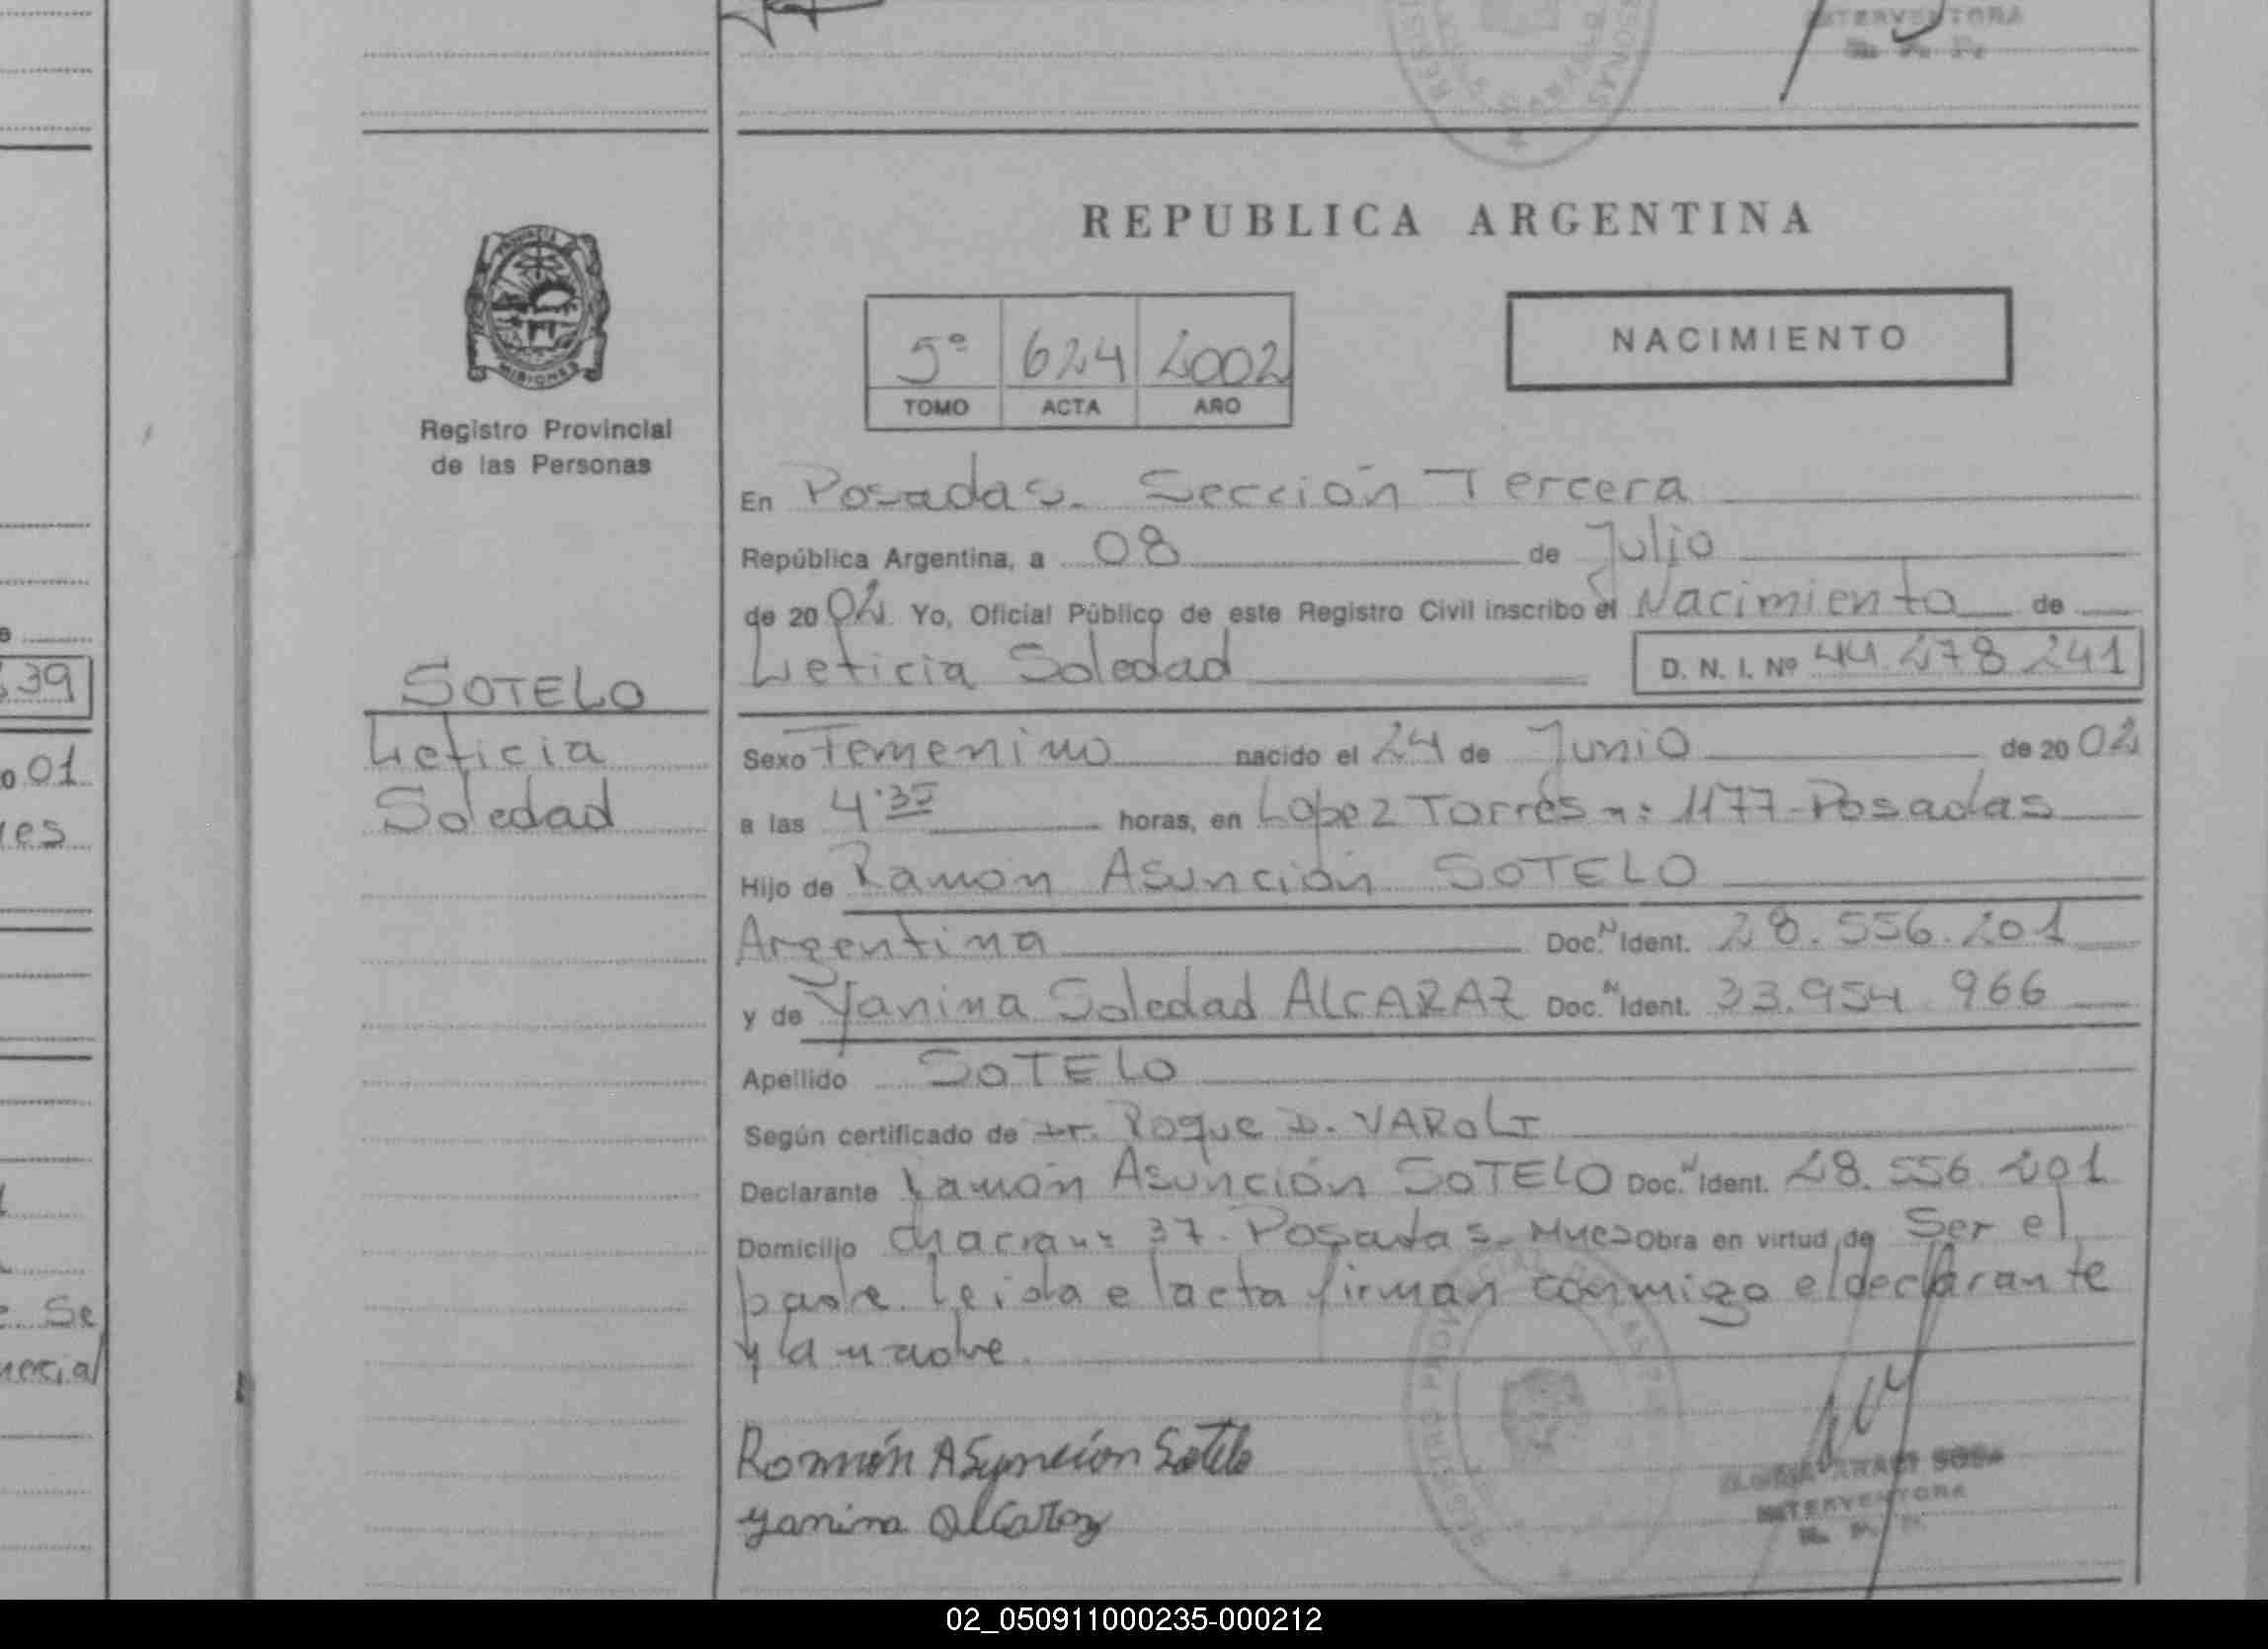 INTERVENTORA
REPUBLICA ARGENTINA
PROVINCIA
MISIONES
Registro Provincial
de las Personas
5º 624 2002
TOMO ACTA AÑO
NACIMIENTO
En Posadas. Sección Tercera
República Argentina, a 08 de Julio
de 2002 Yo, Oficial Público de este Registro Civil inscribo el Nacimiento de
Leticia Soledad D. N. I. Nº 44.278.241
39
SOTELO
Leticia
Soledad
01
res
Sexo Femenino nacido el 24 de Junio de 2002
a las 4'35 horas, en Lopez Torres nº: 1177-Posadas
Hijo de Ramón Asunción SOTELO
Argentina Doc.N Ident. 28.556.201
y de Yanina Soledad ALCARAZ Doc.N Ident. 33.954.966
Apellido SOTELO
Según certificado de Dr. Roque D. VAROLI
Declarante Ramón Asunción SOTELO Doc.N Ident. 28.556.201
Domicilio chacra nº 37. Posadas. Mnes Obra en virtud de Ser el
padre. Leida el acta firman conmigo el declarante
y la madre.
Se
Ramón Asunción Sotelo
Yanina Alcaraz
SOSA
INTERVENTORA
02_050911000235-000212